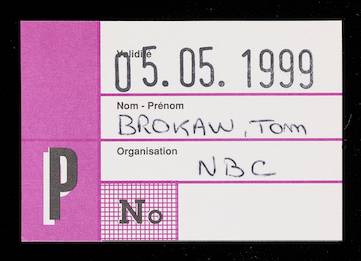 Validité
05.05.1999
Nom - Prénom
BROKAW, Tom
Organisation
NBC
P
No